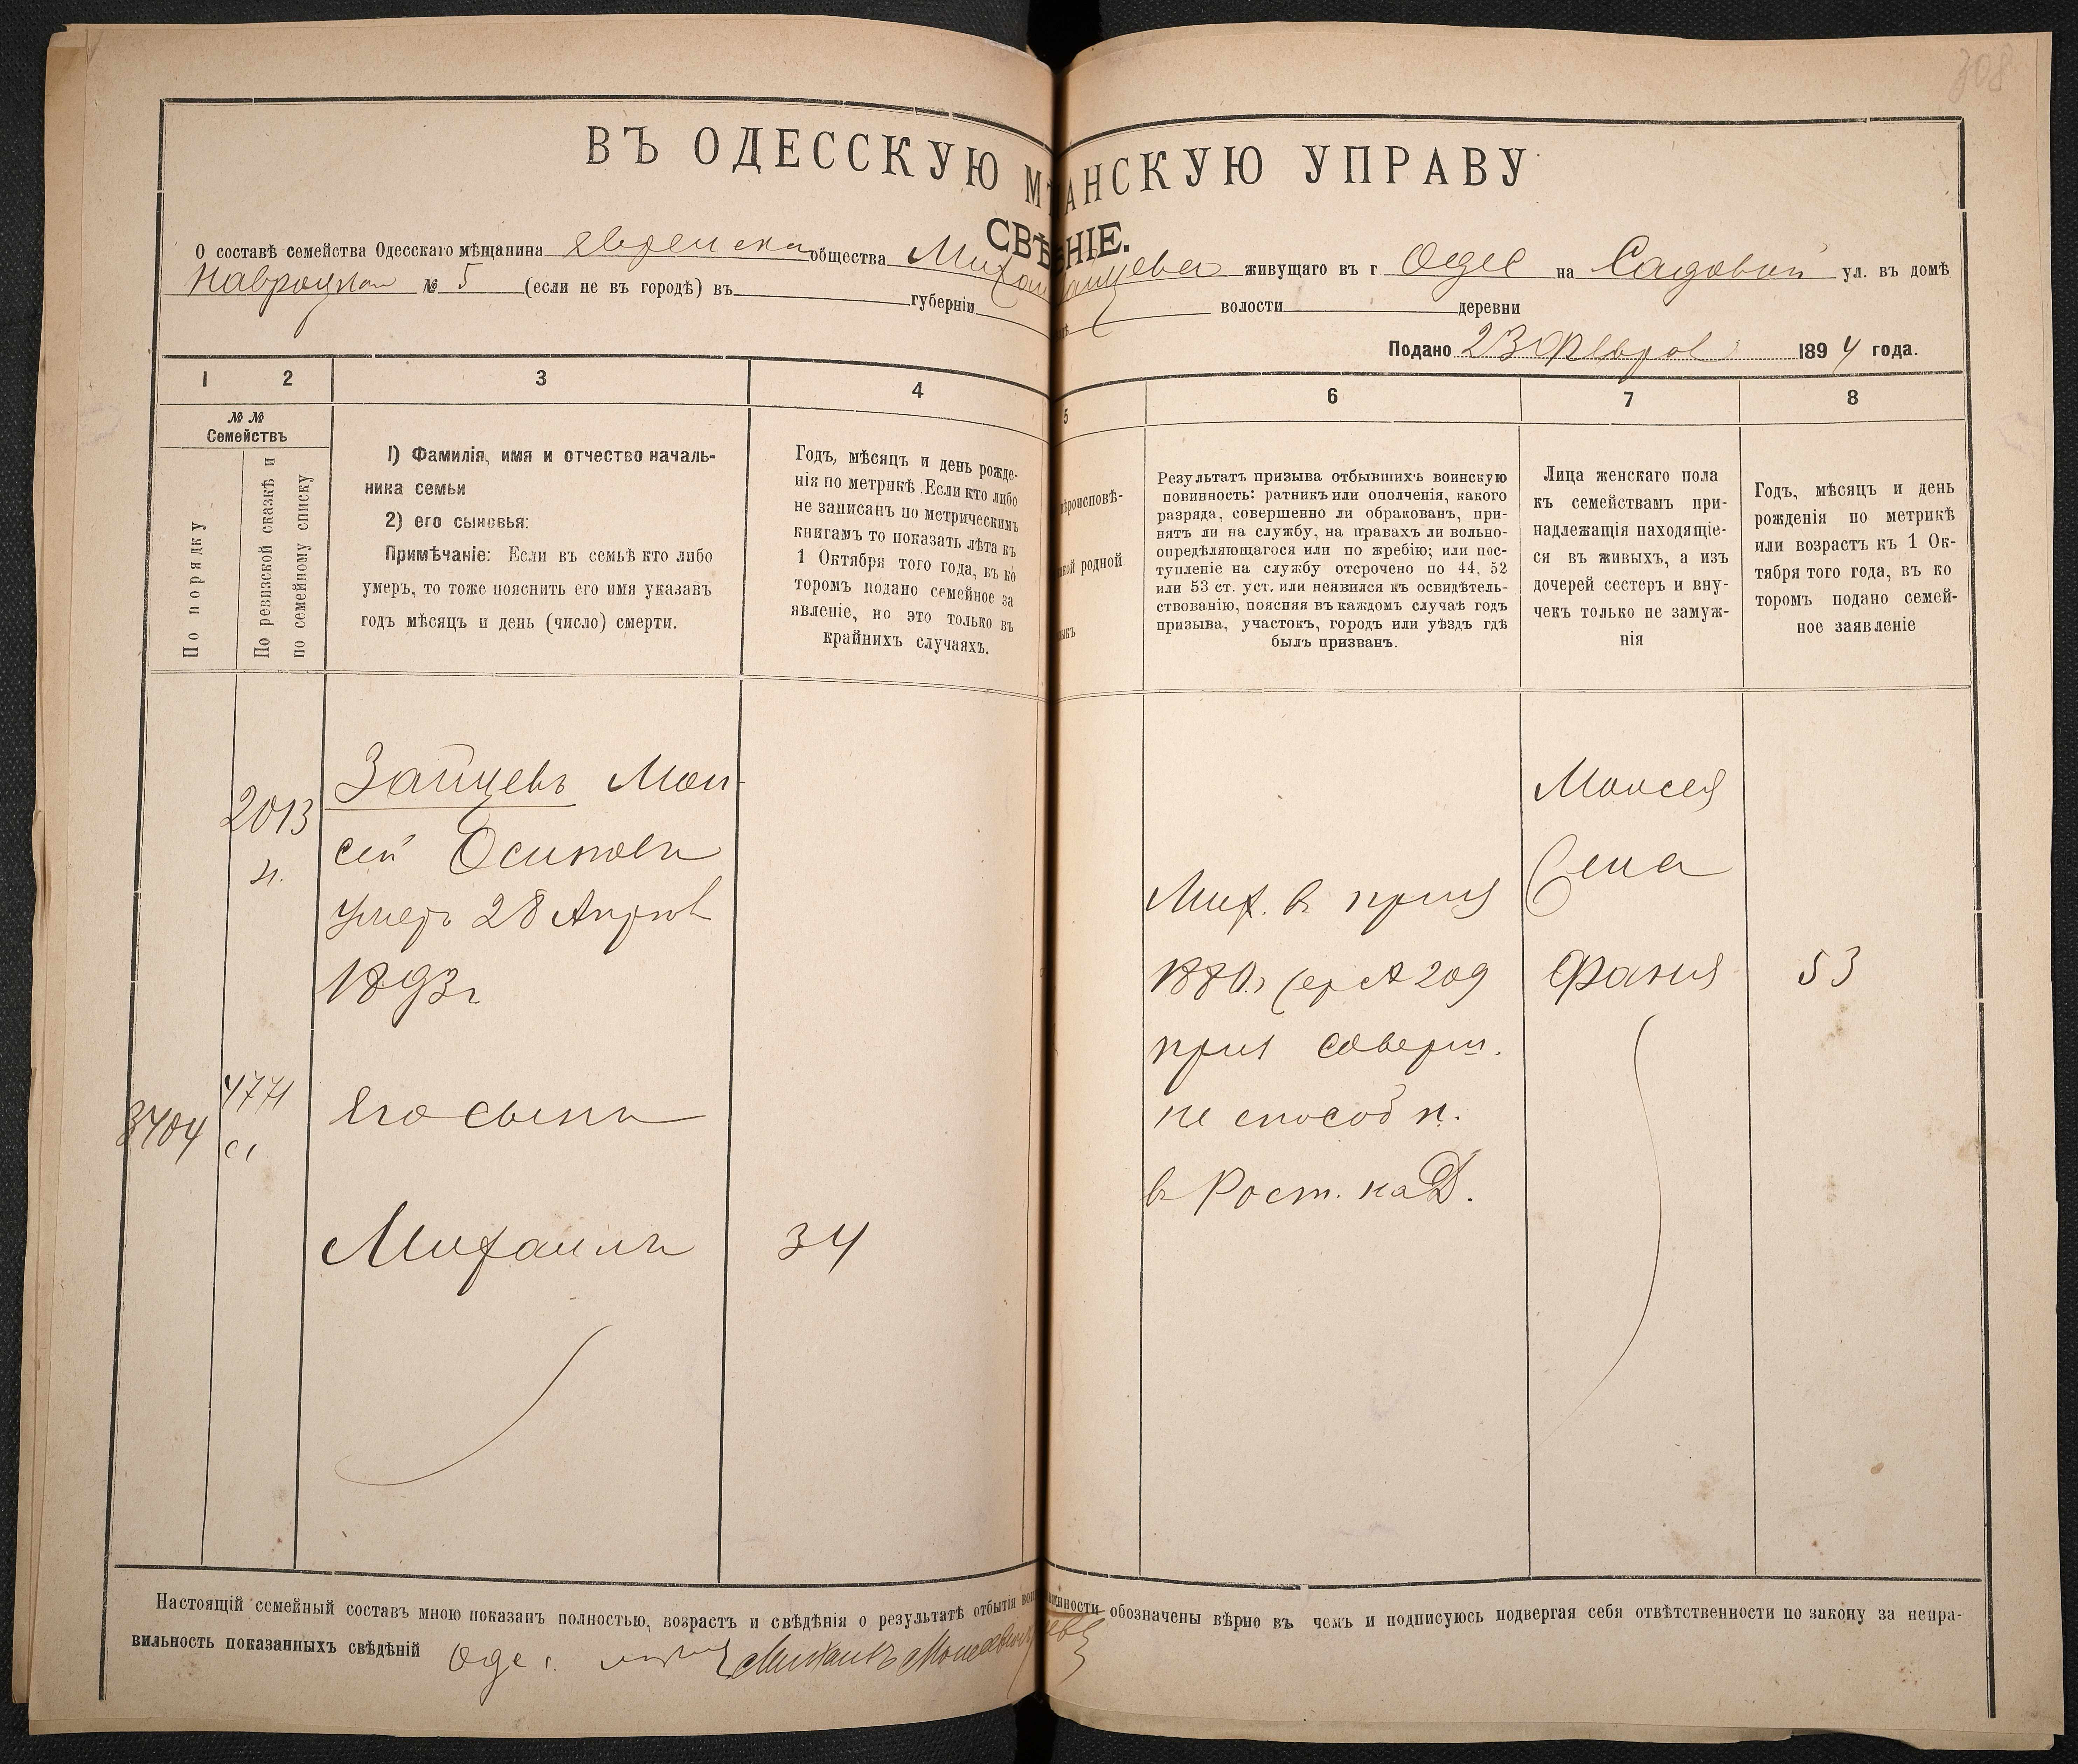 308
ВЪ ОДЕССКУЮ М АНСКУЮ УПРАВУ
СВѢ НІЕ.
О составѣ семейства Одесскаго мѣщанина еврейска общества живущаго въ г Одес на Садовой ул. въ домѣ
Навроцкаго № 5 (если не въ городѣ) въ губерніи волости деревни
Подано 23 Феврал 1894 года.
1 2 3 4 5 6 7 8
№ №
Семействъ
По порядку
По ревизской сказкѣ и
по семейному списку
1) Фамилія, имя и отчество началь-
ника семьи
2) его сыновья:
Примѣчаніе: Если въ семьѣ кто либо
умеръ, то тоже пояснить его имя указавъ
годъ мѣсяцъ и день (число) смерти.
Годъ, мѣсяцъ и день рожде-
нія по метрикѣ. Если кто либо
не записанъ по метрическимъ
книгамъ то показать лѣта къ
1 Октября того года, въ ко
торомъ подано семейное за
явленіе, но это только въ
крайнихъ случаяхъ.
ѣроисповѣ-
кой родной
ыкъ
Результатъ призыва отбывшихъ воинскую
повинность: ратникъ или ополченія, какого
разряда, совершенно ли обракованъ, при-
нятъ ли на службу, на правахъ ли вольно-
опредѣляющагося или по жребію; или пос-
тупленіе на службу отсрочено по 44, 52
или 53 ст. уст. или неявился къ освидѣтель-
ствованію, поясняя въ каждомъ случаѣ годъ
призыва, участокъ, городъ или уѣздъ гдѣ
былъ призванъ.
Лица женскаго пола
къ семействамъ при-
надлежащія находящіе-
ся въ живыхъ, а изъ
дочерей сестеръ и вну-
чекъ только не замуж-
нія
Годъ, мѣсяцъ и день
рожденія по метрикѣ
или возрастъ къ 1 Ок-
тября того года, въ ко
торомъ подано семей-
ное заявленіе
2013
Зайцевъ Мои-
сей Осиповъ
умеръ 28 Апрѣл
1893г
3404
4771
Его сынъ
Михаилъ
34
Мих. въ приз
1880г 209
приз соверш.
не способн.
в Рост. на Д.
Моисея
жена
Фаня
53
Настоящій семейный составъ мною показанъ полностью, возрастъ и свѣдѣнія о результатѣ отбытія вои инности обозначены вѣрно въ чемъ и подписуюсь подвергая себя отвѣтственности по закону за непра-
вильность показанныхъ свѣдѣній Одес. Михаилъ